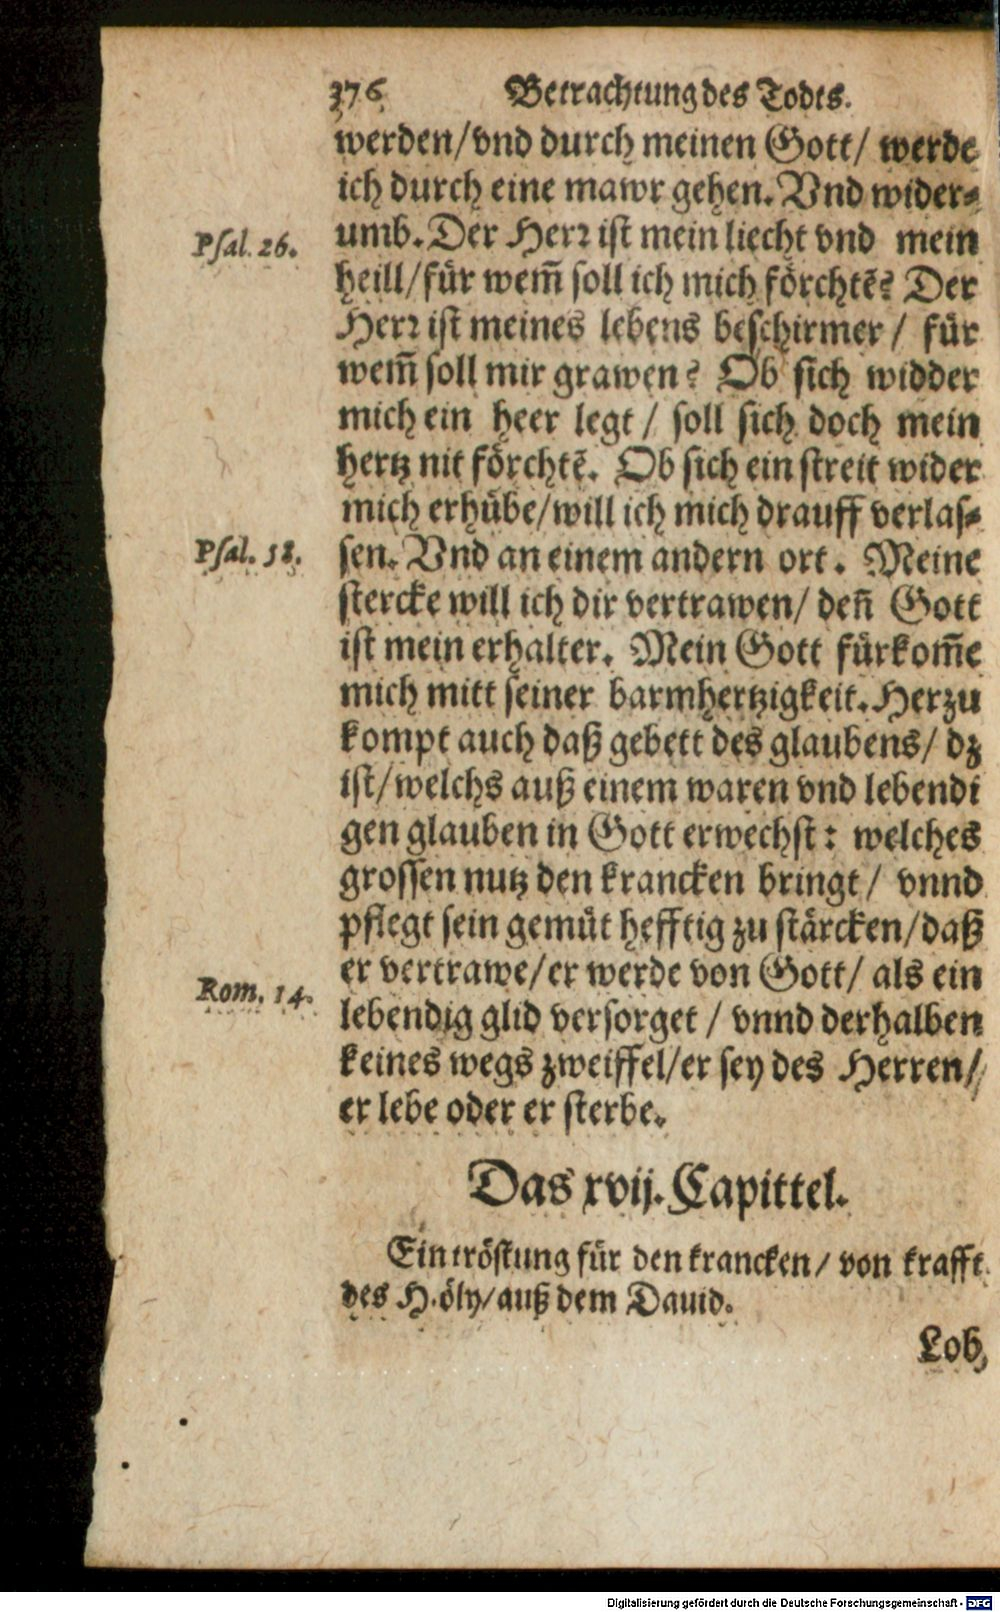 376 Betrachtung des Todts.
werden/vnd durch meinen Gott/ werde
ich durch eine mawr gehen. Vnd wider⸗
Psal. 26. umb. Der Herꝛ ist mein liecht vnd mein
heill/für wem̃ soll ich mich förchtẽ? Der
Herꝛ ist meines lebens beschirmer/ für
wem̃ soll mir grawen? Ob sich widder
mich ein heer legt/ soll sich doch mein
hertz nit förchtẽ. Ob sich ein streit wider
mich erhübe/will ich mich drauff verlas⸗
Psal. 58. sen. Vnd an einem andern ort. Meine
stercke will ich dir vertrawen/ deñ Gott
ist mein erhalter. Mein Gott fürkom̃e
mich mitt seiner barmhertzigkeit. Herzu
kompt auch daß gebett des glaubens/ dz
ist/welchs auß einem waren vnd lebendi
gen glauben in Gott erwechst: welches
grossen nutz den krancken bringt/ vnnd
pflegt sein gemüt hefftig zu stärcken/daß
er vertrawe/er werde von Gott/ als ein
Rom. 14. lebendig glid versorget/ vnnd derhalben
keines wegs zweiffel/er sey des Herren/
er lebe oder er sterbe.
Das xvij. Capittel.
Ein tröstung für den krancken/ von krafft
des H. öly/auß dem Dauid.
Lob,
Digitalisierung gefördert durch die Deutsche Forschungsgemeinschaft - DFG